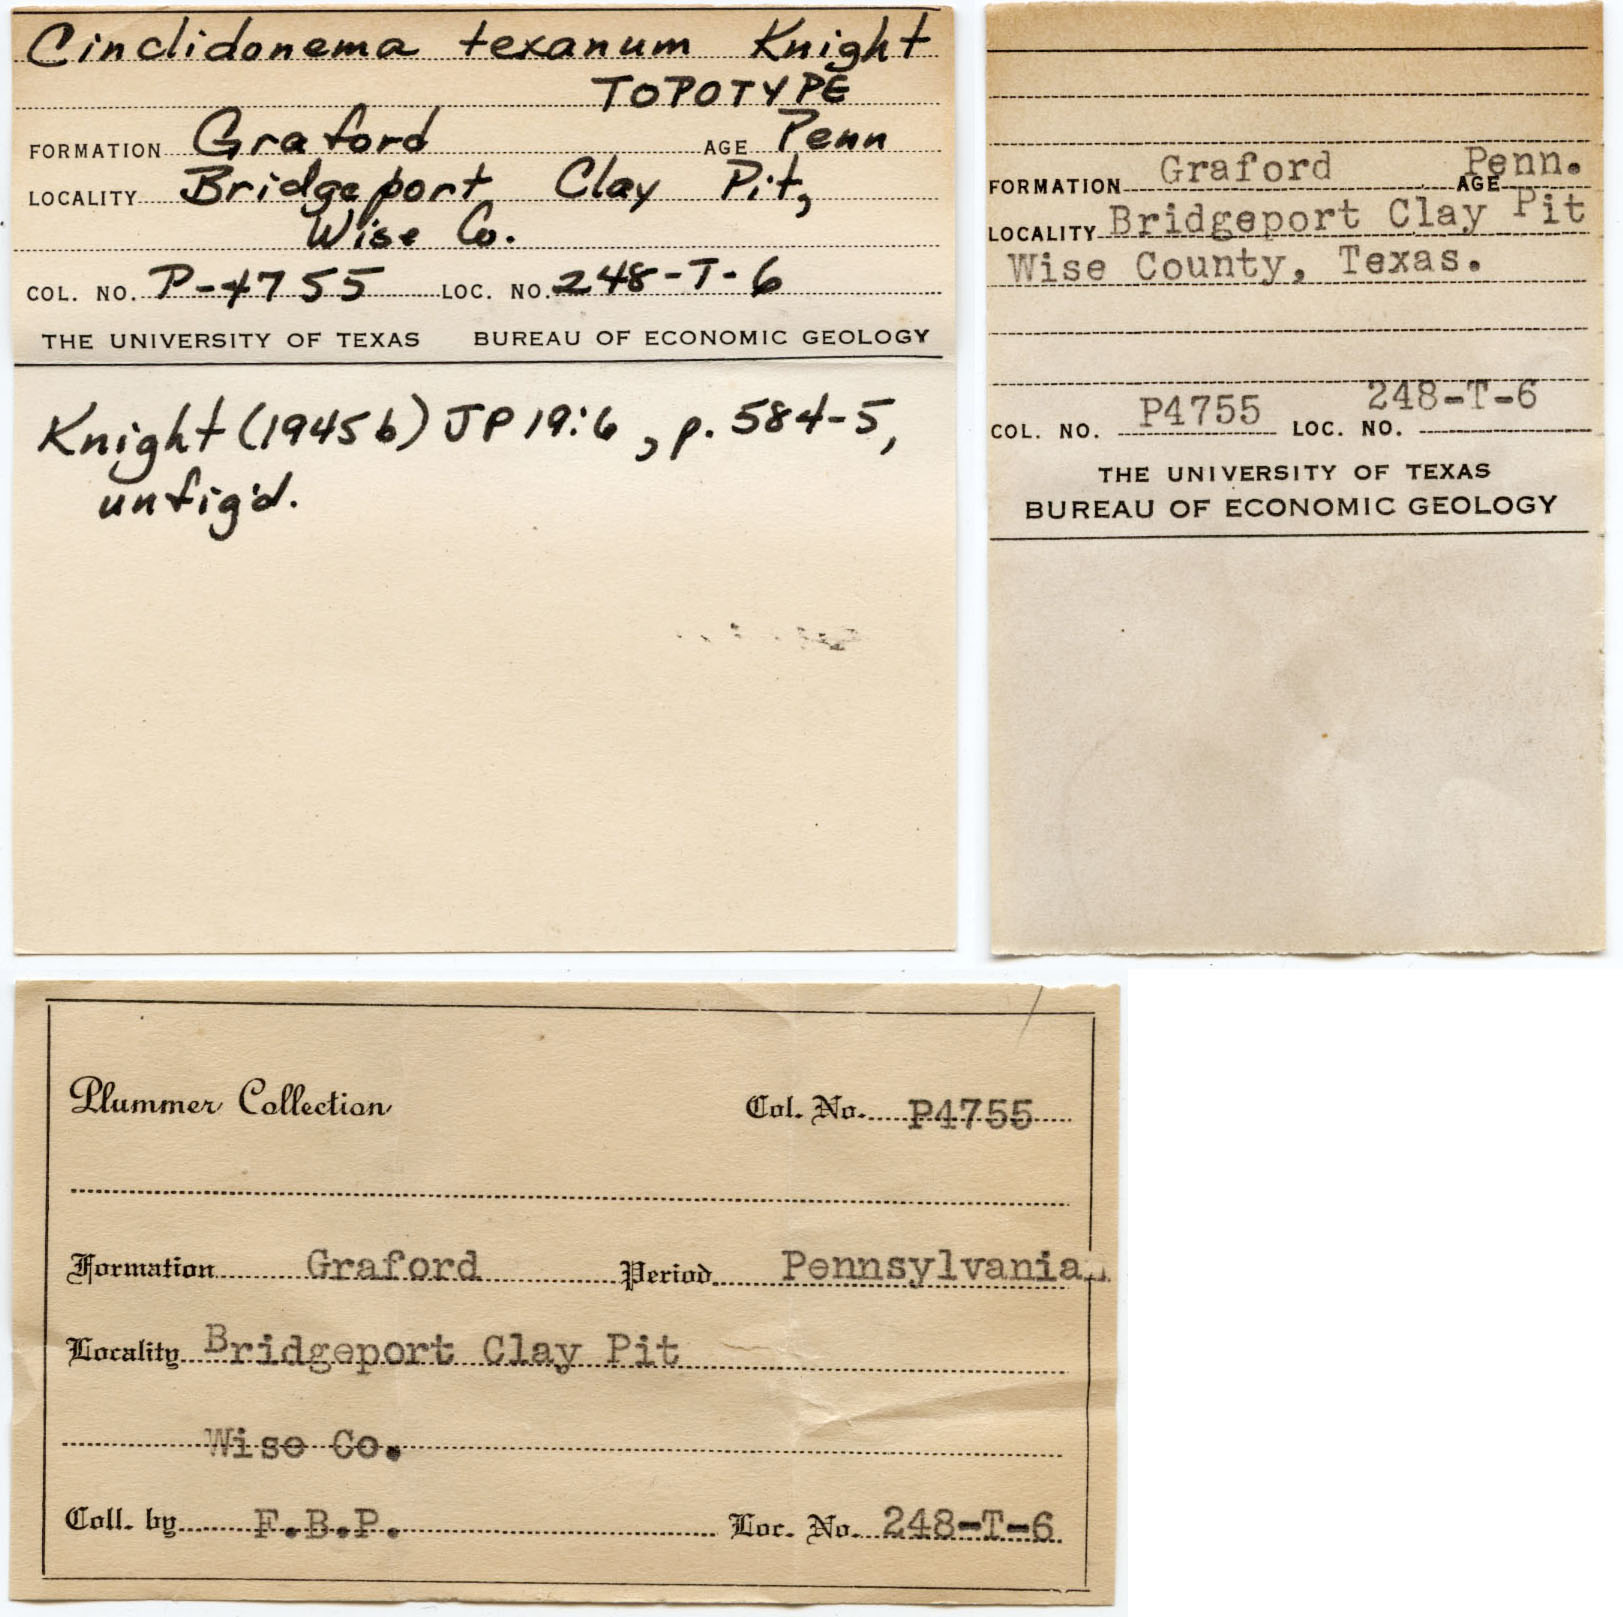 Cinclidonema texanum Knight
TOPOTYPE
FORMATION Graford AGE Penn
LOCALITY Bridgeport Clay Pit,
Wise Co.
COL. NO. P-4755 LOC. NO. 248-T-6
THE UNIVERSITY OF TEXAS BUREAU OF ECONOMIC GEOLOGY
Knight (1945b) JP 19:6, p. 584-5,
unfig'd.
FORMATION Graford AGE Penn.
LOCALITY Bridgeport Clay Pit
Wise County, Texas.
COL. NO. P4755 LOC. NO. 248-T-6
THE UNIVERSITY OF TEXAS
BUREAU OF ECONOMIC GEOLOGY
Plummer Collection Col. No. P4755
Formation Graford Period Pennsylvanian
Locality Bridgeport Clay Pit
Wise Co.
Coll. by F.B.P. Loc. No. 248-T-6